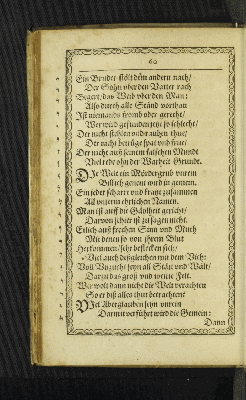 60
Ein Bruder stelt dem andern nach/
Der Sohn vber den Vatter rach
Begert/ das Weib vber den Man:
Also durch alle Ständ vorthan
Ist niemands fromb oder gerecht/
Wer wird gefunden jetzt so schlecht/
Der nicht stehlen und rauben thue/
Der nicht betriege spat vnd frue/
Der nicht auß seinem falschen Mundt
Viel red ohn der Warheit Grundt.
Die Welt ein Mördergrub vnrein
Billich genent wird in gemein,
Ein jeder scharrt vnd kratzt zusammen
All vnterm ehrlichen Namen.
Man ist auff die Gältheit gericht/
Darvon schier ist zusagen nicht.
Etlich auß frechen Sinn vnd Muth
Mit denen so von jhrem Blut
Herkommen/ sehr beflecken sich/
Viel auch deßgleichen mit dem Vieh:
Voll Vnzucht seyn all Stätt vnd Wäld/
Darzu das groß vnd weite Feld.
Wer wolt dann nicht die Welt verachten
So er diß alles thut betrachten?
Viel Aberglauben seyn vnrein
Darmit verführt wird die Gemein:
Dann